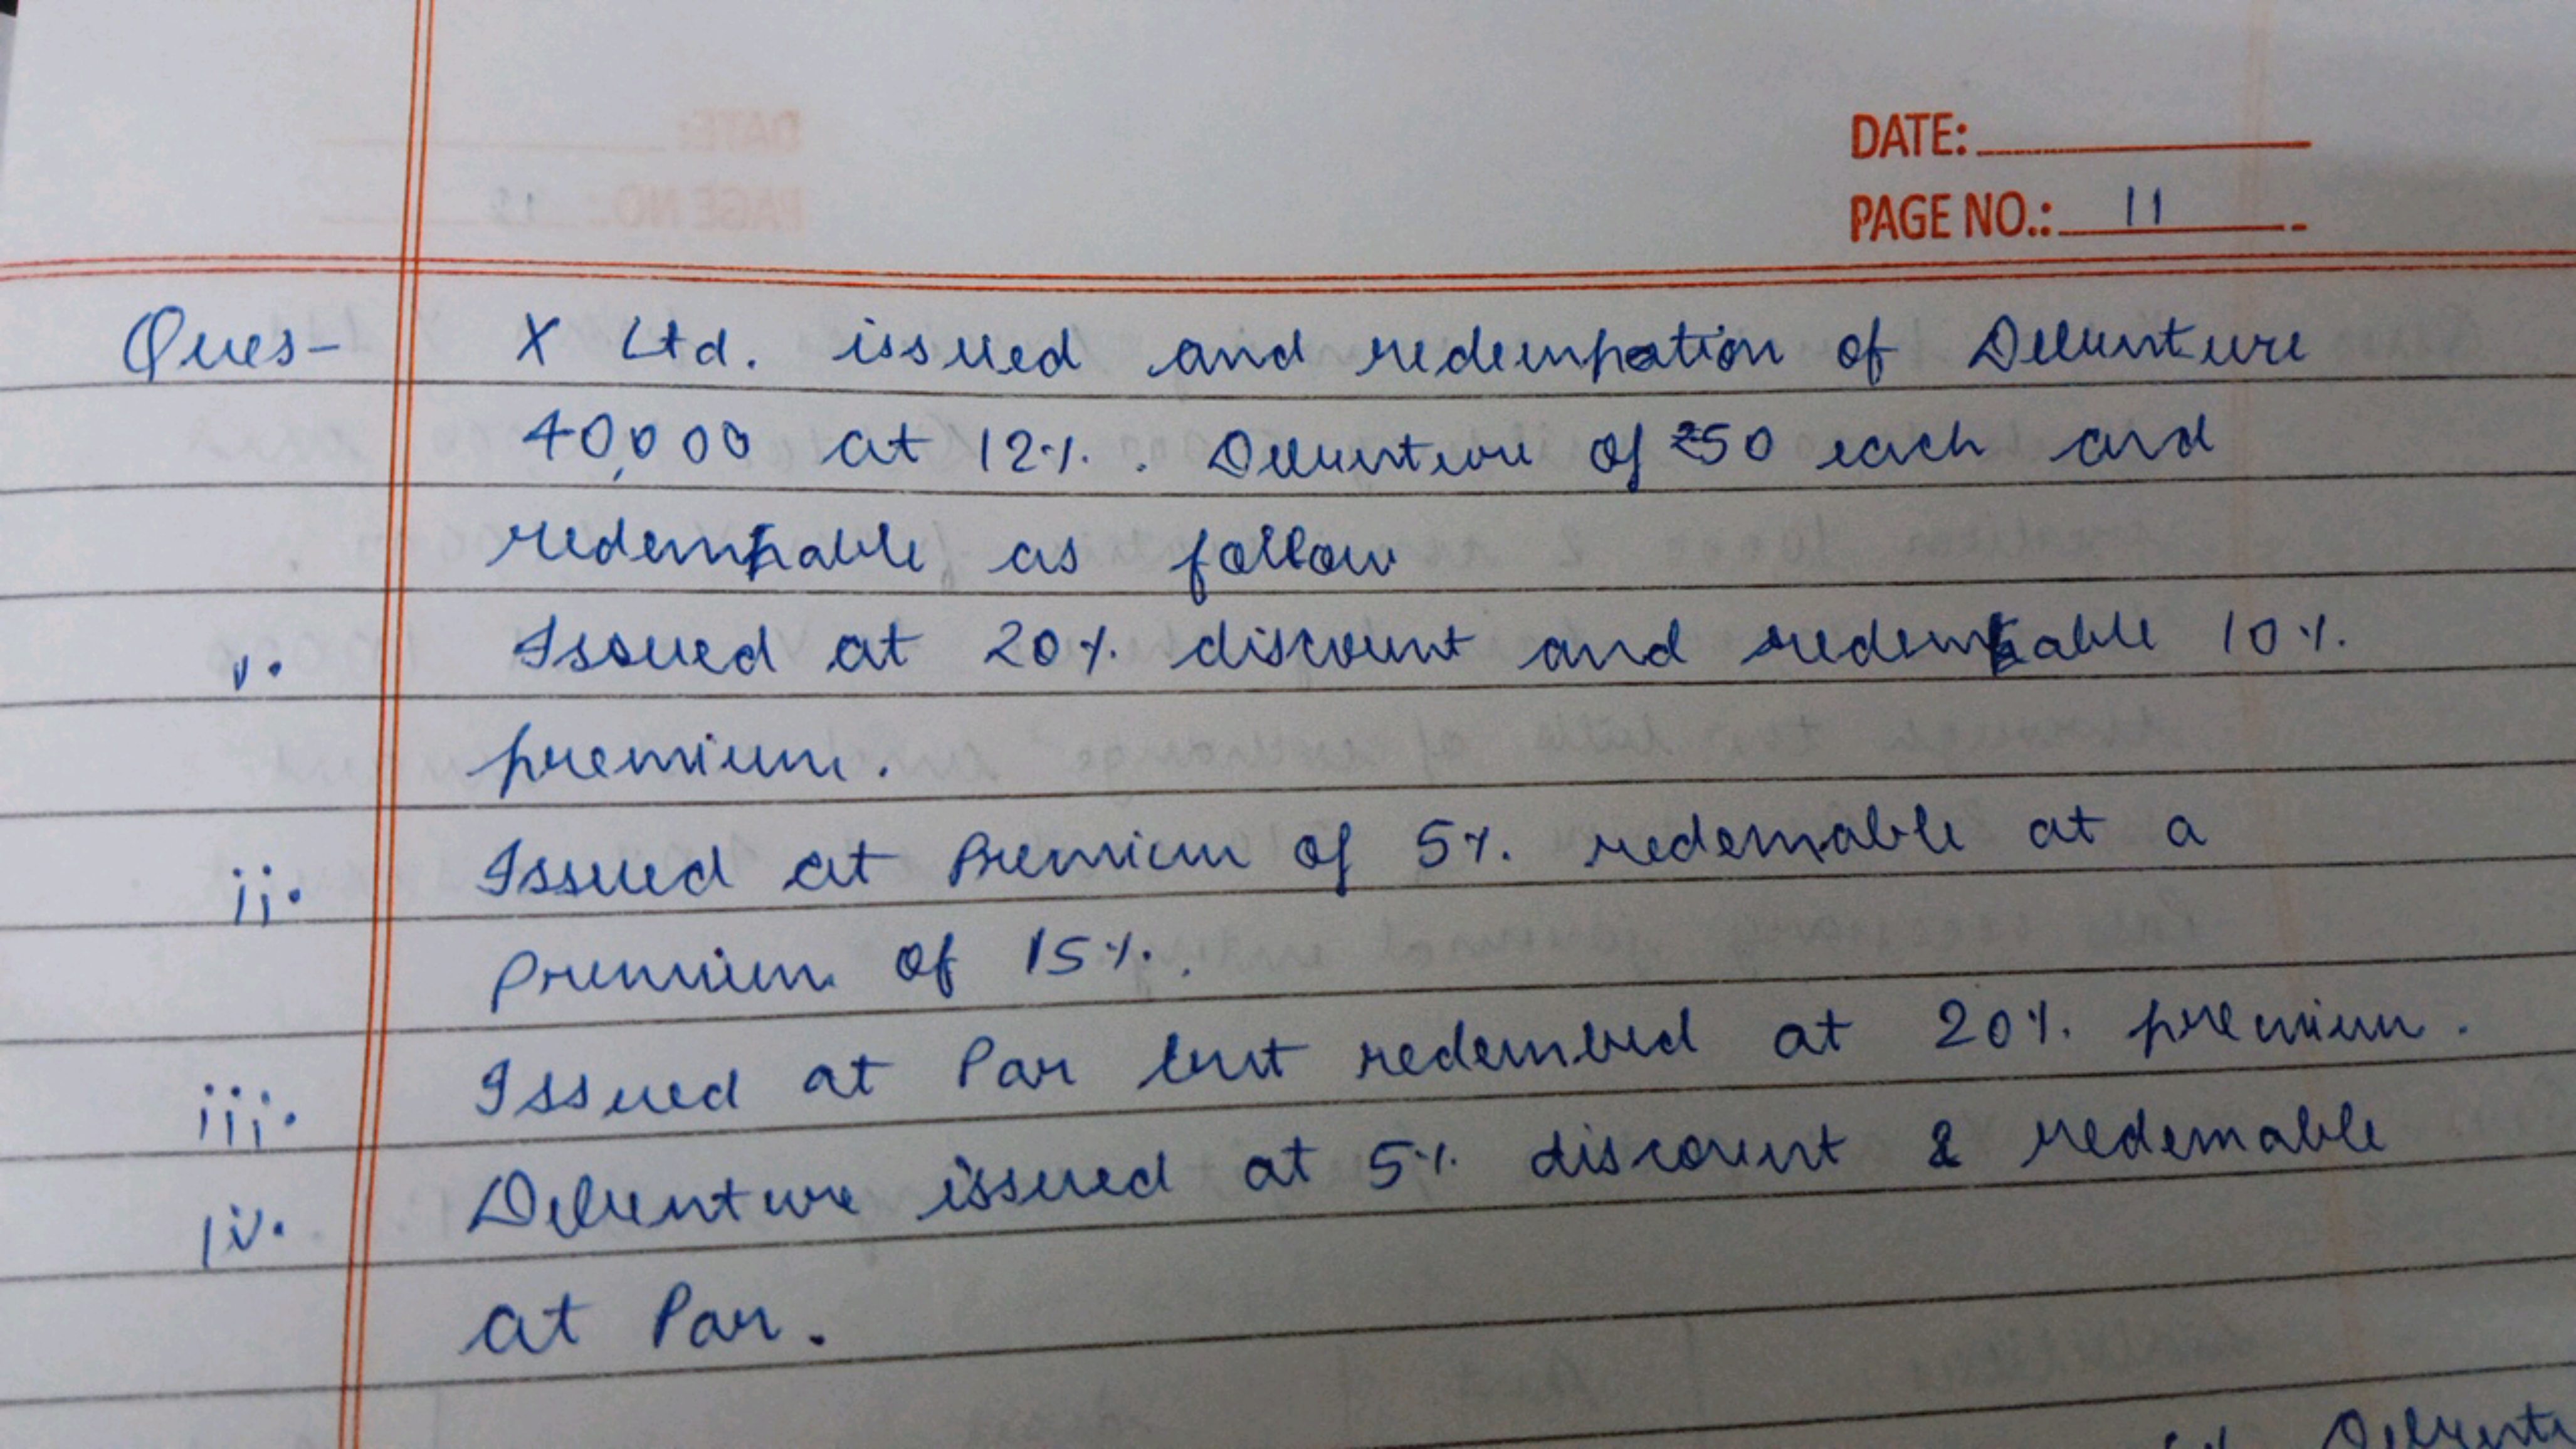 DATE:
PAGE NO.: 11
Ques- X Ltd. issued and redempation of Debenture
40,000 at 12%. Debenture of ₹50 each and
redempable as follow
i. Issued at 20% discount and redemable 10%
premium.
ii. Issued at Premium of 5% redemable at a
Premium of 15%.
iii. Issued at Par but redembed at 20% premium.
iv. Debenture issued at 5% discount & redemable
at Par.